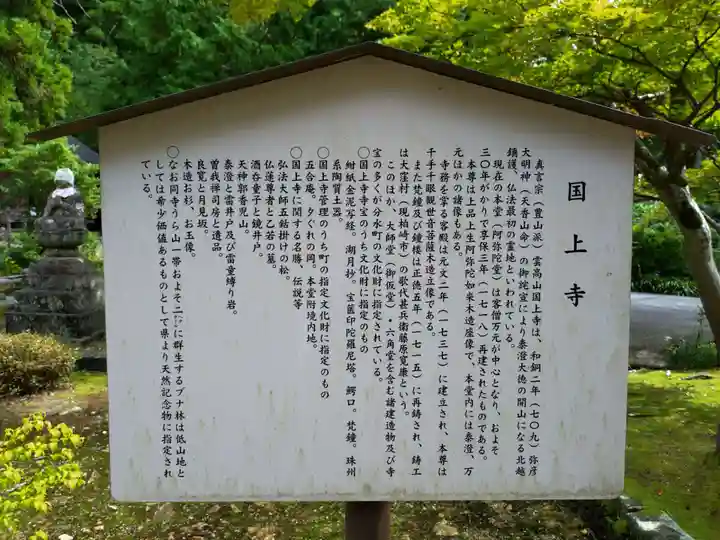 国上寺
真言宗（豊山派）雲高山国上寺は、和銅二年（七〇九）弥彦
大明神（天香山命）の御託宣により泰澄大徳の開山になる北越
鎮護、仏法最初の霊地といわれている。
現在の本堂（阿弥陀堂）は客僧万元が中心となり、およそ
三〇年がかりで享保三年（一七一八）再建されたものである。
本尊は上品上生阿弥陀如来木造座像で、本堂内には泰澄、万
元ほかの諸像もある。
寺務を掌る客殿は元文二年（一七三七）に建立され、本尊は
千手千眼観世音菩薩木造立像である。
また梵鐘及び鐘楼は正徳五年（一七一五）に再鋳され、鋳工
は大窪村（現柏崎市）の歌代甚兵衛藤原寛康という。
このほか、大師堂（御仮堂）・六角堂を含む諸建造物及び寺
宝の多くが分水町の文化財に指定されている。
〇国上寺寺宝のうち町の文化財に指定のもの
紺紙金泥写経。湖月抄。宝篋印陀羅尼塔。鰐口。梵鐘。珠州
系陶質土器。
〇国上寺管理のうち町の指定文化財に指定のもの
五合庵。夕ぐれの岡。本堂附境内地。
〇国上寺に関する名勝、伝説等
弘法大師五鈷掛けの松。
仏蓮尊者と乙若の墓。
酒呑童子と鏡井戸。
天神郭香児山。
泰澄と雷井戸及び雷童縛り岩。
曽我禅司房と遺品。
良寛と月見坂。
木造お杉、お玉像。
〇なお同寺うら山一帯およそ二㌶に群生するブナ林は低山地と
しては希少価値あるものとして県より天然記念物に指定され
ている。